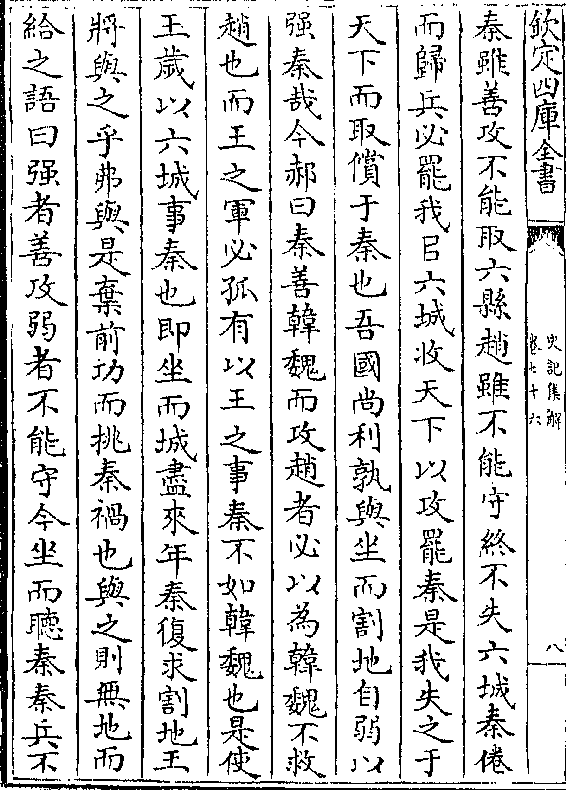 欽定四庫全書
史記集解
卷七十六
八
秦雖善攻不能取六縣趙雖不能守終不失六城秦倦
而歸兵必罷我㠯六城收天下以攻罷秦是我失之于
天下而取償于秦也吾國尚利孰與坐而割地自弱以
强秦哉今郝曰秦善韓魏而攻趙者必以為韓魏不救
趙也而王之軍必孤有以王之事秦不如韓魏也是使
王嵗以六城事秦也即坐而城盡來年秦復求割地王
將與之乎弗與是棄前功而挑秦禍也與之則無地而
給之語曰强者善攻弱者不能守今坐而聽秦秦兵不